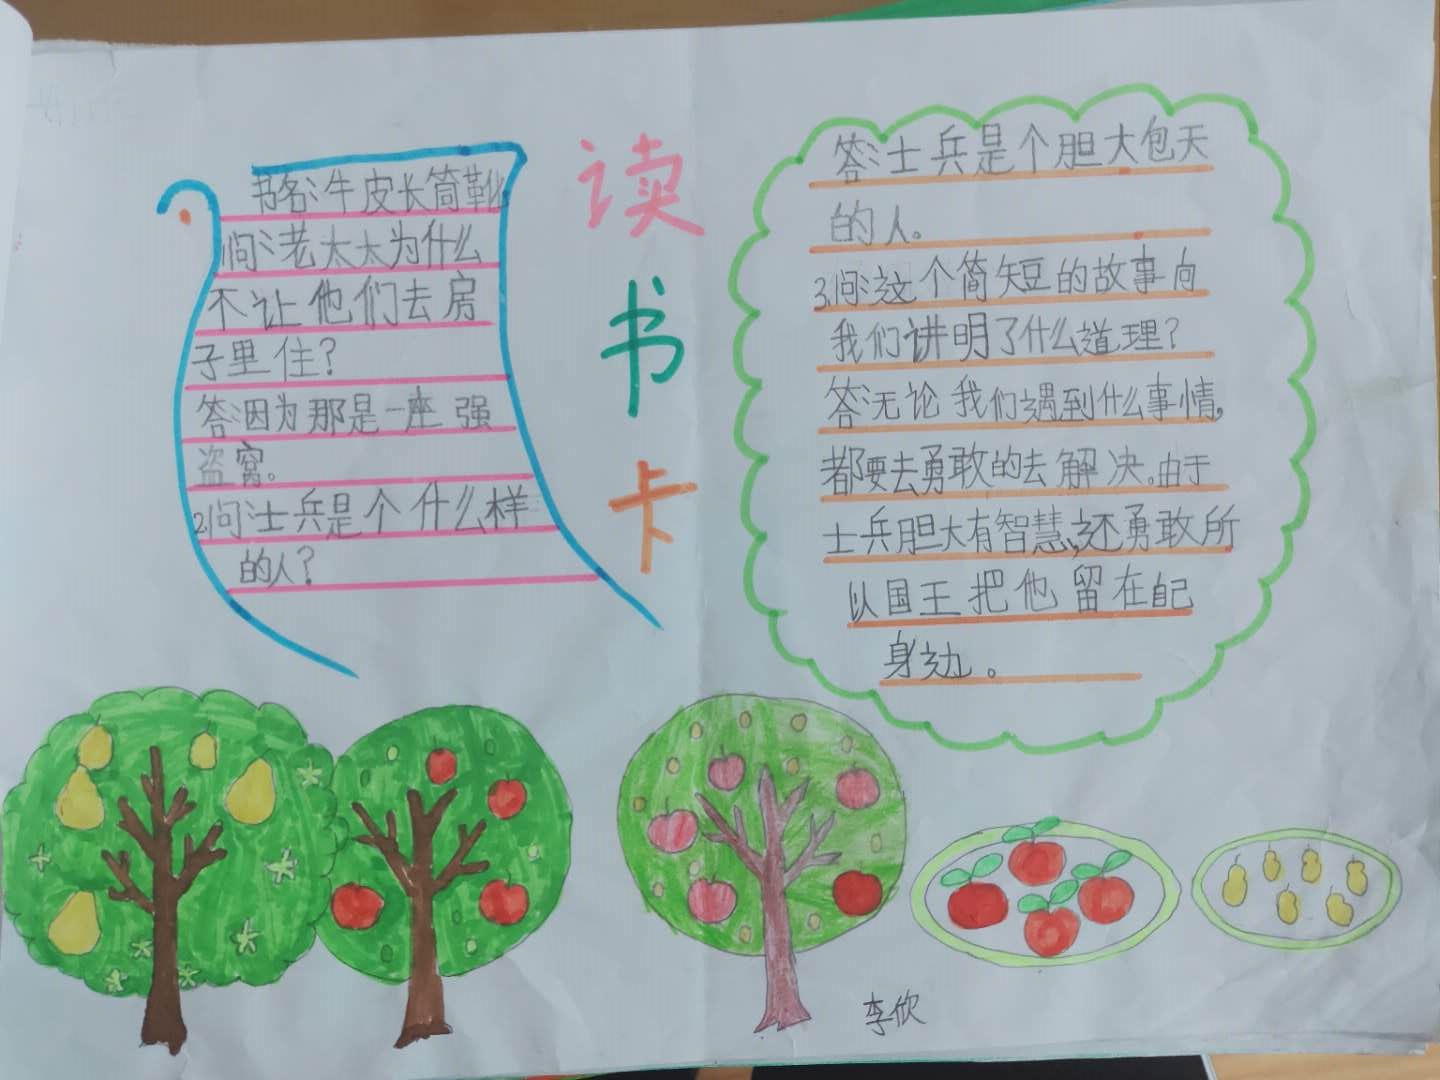 读书卡
书名:牛皮长筒靴
问:老太太为什么
不让他们去房
子里住?
答:因为那是一座强
盗窝。
2.问:士兵是个什么样
的人?
答:士兵是个胆大包天
的人。
3.问:这个简短的故事向
我们讲明了什么道理?
答:无论我们遇到什么事情,
都要去勇敢的去解决。由于
士兵胆大有智慧,还勇敢所
以国王把他留在自己
身边。
李欣